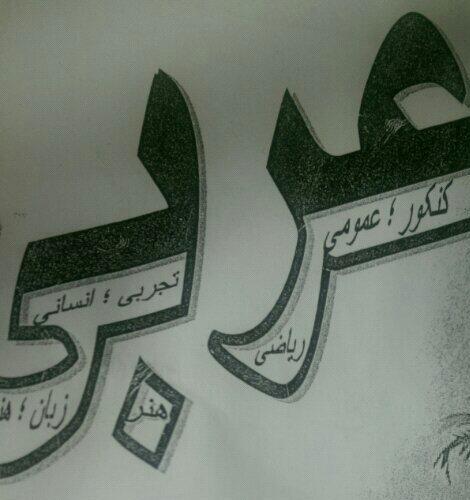 عربی
کنکور ؛ عمومی
ریاضی
تجربی ؛ انسانی
هنر
زبان ؛